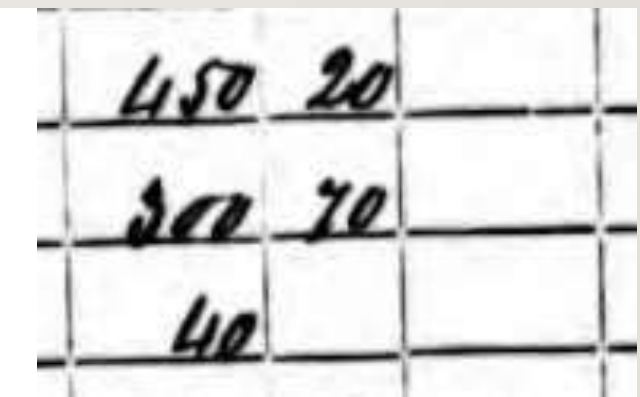 450 20
300 70
40